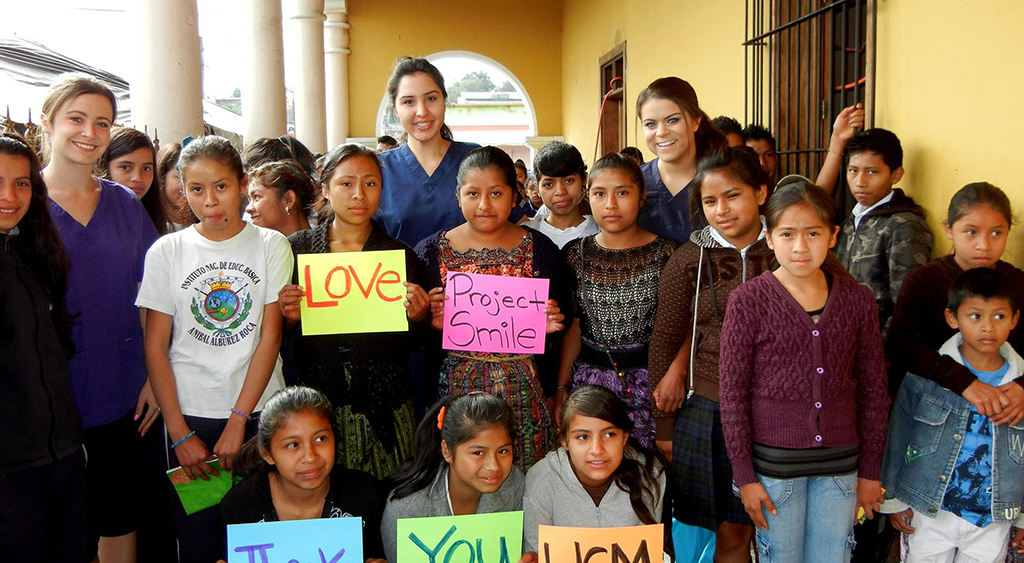 INSTITUTO NAC. DE EDUC. BASICA
ANIBAL ALBUREZ ROCA
LOVE
Project
Smile
YOU
UCM